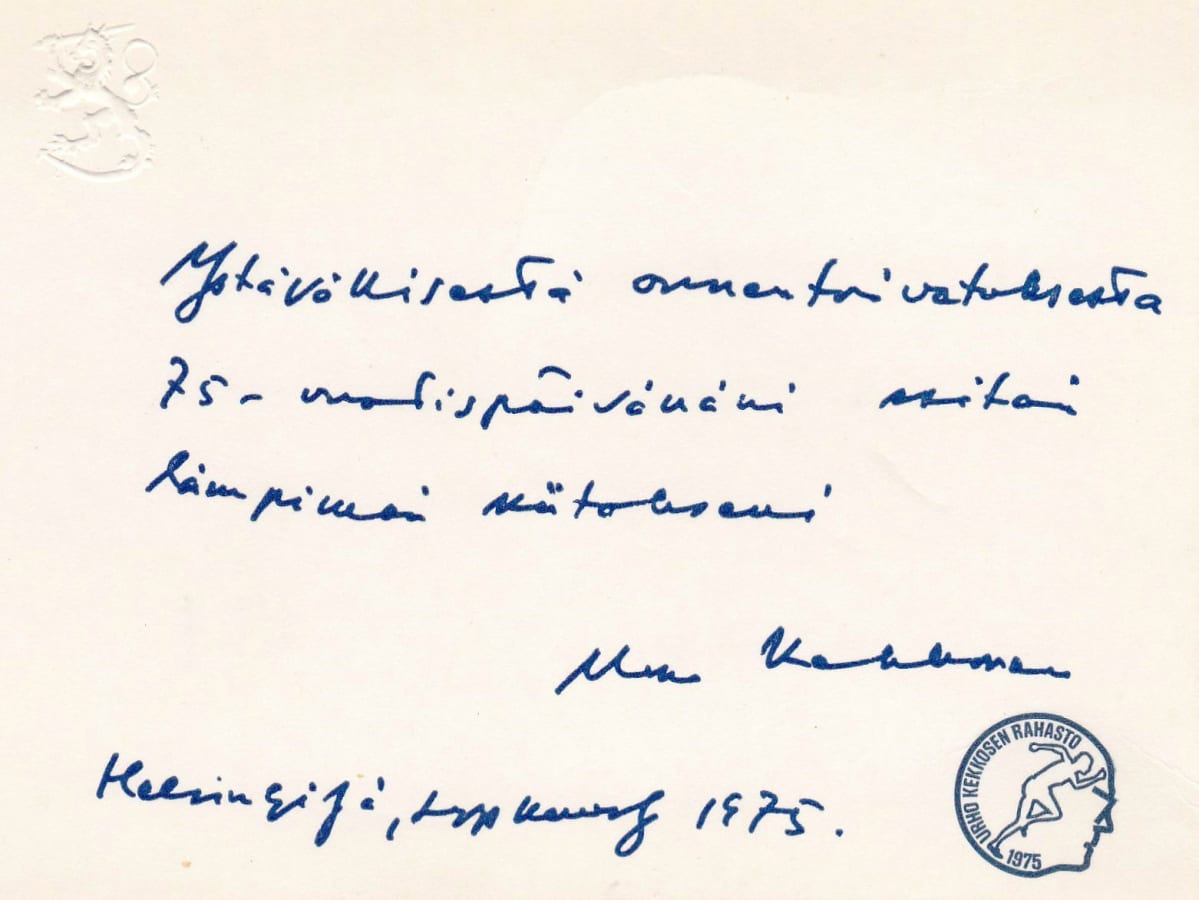 Ystävällisestä onnentoivotuksesta
75-vuotispäivänäni mitä
lämpimän kiitokseni
Urho Kekkonen
Helsingissä, syyskuussa 1975.
URHO KEKKOSEN RAHASTO
1975